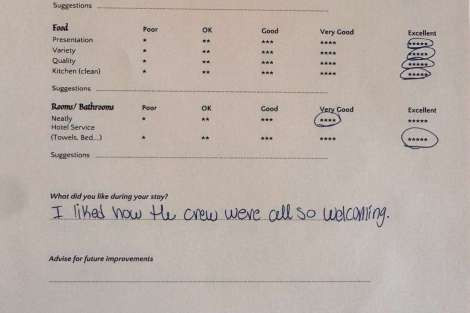 Suggestions
Food Poor OK Good Very Good Excellent
Presentation * ** *** **** *****
Variety * ** *** **** *****
Quality * ** *** **** *****
Kitchen (clean) * ** *** **** *****
Suggestions
Rooms/ Bathrooms Poor OK Good Very Good Excellent
Neatly * ** *** **** *****
Hotel Service
(Towels, Bed...) * ** *** **** *****
Suggestions
What did you like during your stay?
I liked how the crew were all so welcoming.
Advise for future improvements